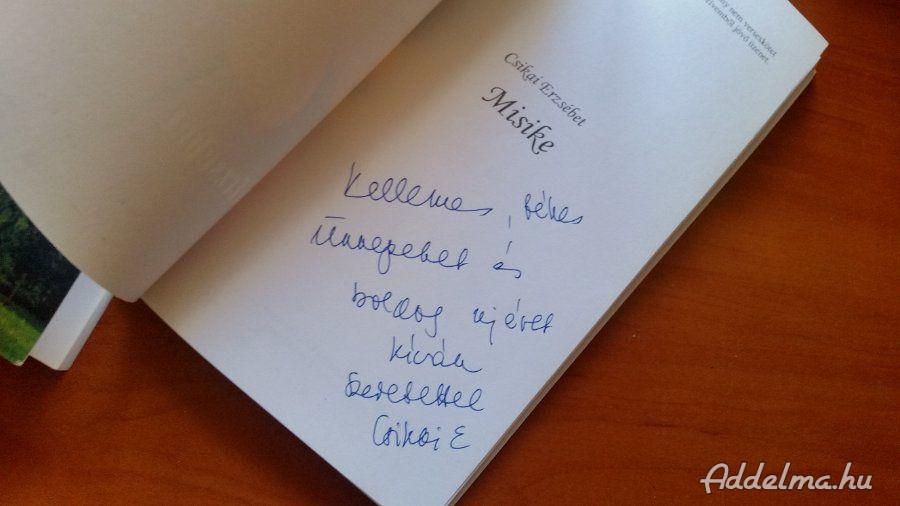 ny nem verseskötet
zívemből jövő üzenet.
Csikai Erzsébet
Misike
Kellemes, békés
Ünnepeket és
boldog újévet
kíván
Szeretettel
Csikai E
Addelma.hu